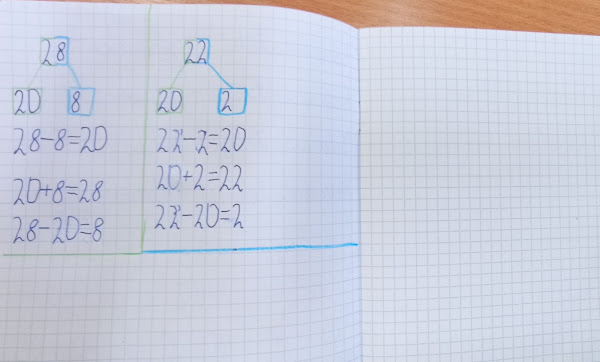 28
20 8
28-8=20
20+8=28
28-20=8
22
20 2
22-2=20
20+2=22
22-20=2